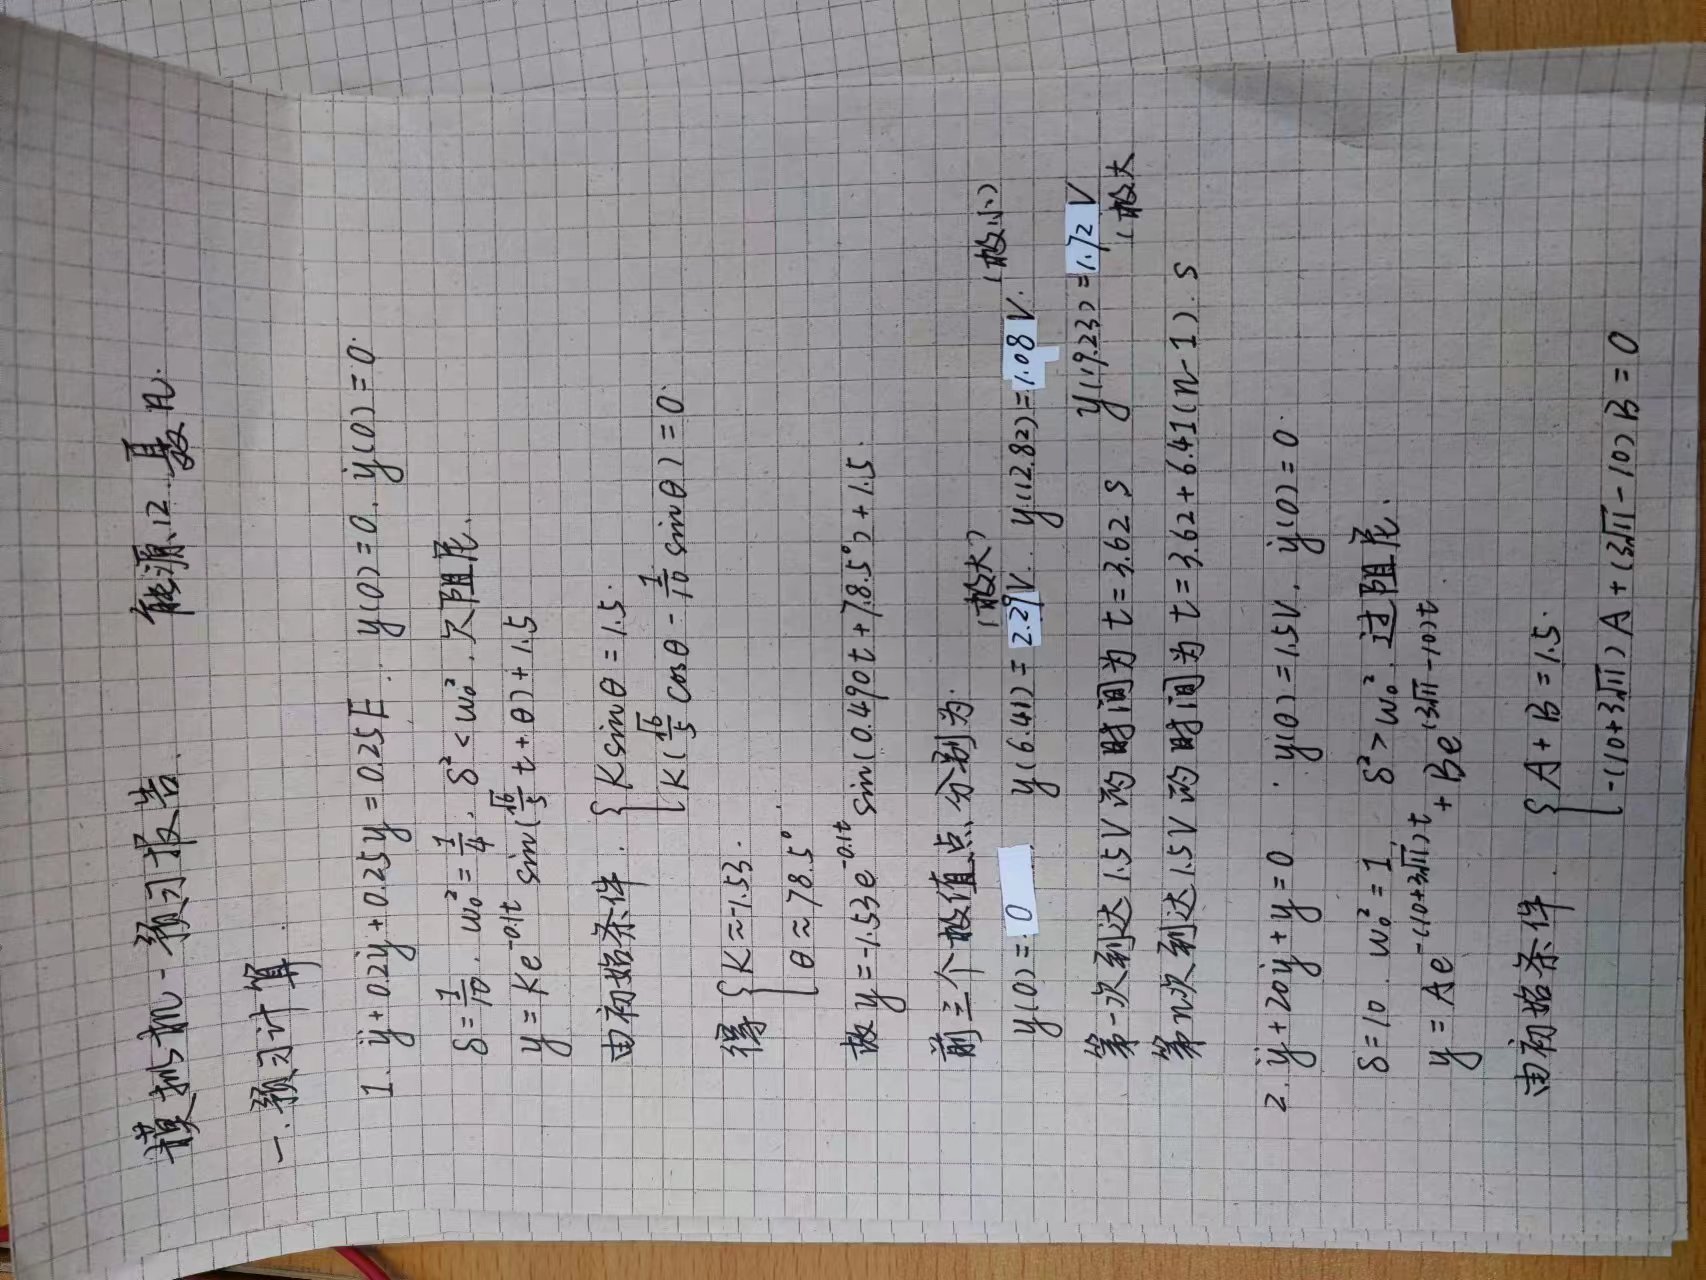 模拟机-预习报告 能源12 聂
一.预习计算
1. ÿ+0.2ẏ+0.25y=0.25E. y(0)=0. ẏ(0)=0.
δ=1/10. ω₀²=1/4. δ²<ω₀². 欠阻尼.
y=Ke^(-0.1t) sin(√6/5 t+θ)+1.5
由初始条件. { Ksinθ=1.5.
K(√6/5 cosθ-1/10 sinθ)=0.
得 { K≈-1.53.
θ≈78.5°
故 y=-1.53e^(-0.1t) sin(0.490t+78.5°)+1.5.
前三个极值点分别为.
(极大) (极小)
y(0)=0 y(6.41)=2.29V. y(12.82)=1.08V.
y(19.23)=1.72V
(极大
第一次到达1.5V的时间为t=3.62s
第n次到达1.5V的时间为t=3.62+6.41(n-1).s
2. ÿ+20ẏ+y=0. y(0)=1.5V. ẏ(0)=0.
δ=10. ω₀²=1. δ²>ω₀². 过阻尼.
y=Ae^(-(10+3√11)t)+Be^((3√11-10)t)
由初始条件. { A+B=1.5.
-(10+3√11)A+(3√11-10)B=0